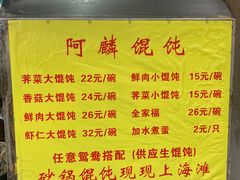 阿麟馄饨
荠菜大馄饨 22元/碗 鲜肉小馄饨 15元/碗
香菇大馄饨 24元/碗 荠菜小馄饨 15元/碗
鲜肉大馄饨 26元/碗 全家福 26元/碗
虾仁大馄饨 32元/碗 加水煮蛋 2元/只
任意鸳鸯搭配（供应生馄饨）
砂锅馄饨现现上海滩